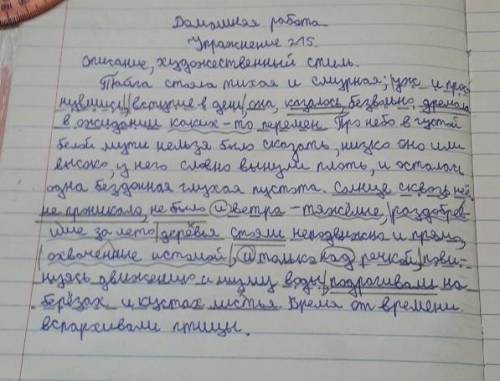 Домашняя работа
Упражнение 215.
Описание, художественный стиль.
Тайга стала тихая и смурная; уже и прос-
нувшись, вступив в день, она, казалось, безвольно дремала
в ожидании каких-то перемен. Про небо в густой
белой мути нельзя было сказать, низко оно или
высоко, у него словно вынули плоть, и осталась
одна бездонная глухая пустота. Солнце сквозь неё
не проникало, не было и ветра - тяжёлые, раздобрев-
шие за лето деревья стояли неподвижно и прямо,
охваченные истомой, и только над речкой, пови-
нуясь движению и шуму воды, подрагивали на
берёзах и кустах листья. Время от времени
вспархивали птицы.